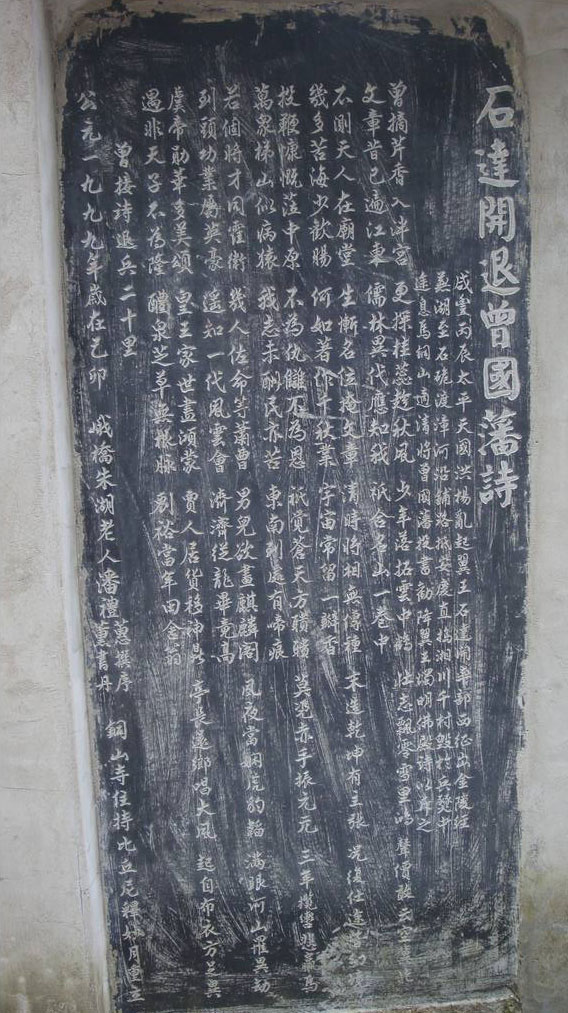 石達開退曾國藩詩
咸豐丙辰太平天國洪楊亂起翼王石達開率部西征出金陵經
蕪湖至石硊渡漳河沿鋪路抵安慶直搗湘川千村毀於兵燹中
途息馬銅山適清將曾國藩投書勸降翼王燭明佛殿詩以斥之
曾摘芹香入泮宮 更探桂蕊趁秋風 少年落拓雲中鶴 壯志飄零雪里鴻 聲價敢云空冀北
文章昔已遍江東 儒林異代應知我 祇合名山一卷中
不則天人在廟堂 生慚名位掩文章 清時將相無傳種 末造乾坤有主張 況復仕途皆幻境
幾多苦海少歡腸 何如著作千秋業 宇宙常留一瓣香
投鞭慷慨蒞中原 不為仇讎不為恩 祇覺蒼天方瞶瞶 莫憑赤手振元元 三年攬轡悲羸馬
萬眾梯山似病猿 我志未酬民亦苦 東南到處有啼痕
若個將才同霍衛 幾人佐命等蕭曹 男兒欲畫麒麟閣 夙夜當嫻虎豹韜 滿眼河山罹異劫
到頭功業屬英豪 遙知一代風雲會 濟濟從龍畢竟高
虞帝勛華多美頌 皇王家世盡鴻蒙 賈人居貨移神鼎 亭長還鄉唱大風 起自布衣方是異
遇非天子不為隆 醴泉芝草無根脈 劉裕當年田舍翁
曾接詩退兵二十里
公元一九九九年歲在己卯 娥橋朱湖老人潘禮蕙撰序 薰書丹 銅山寺住持比丘尼釋妙月重立